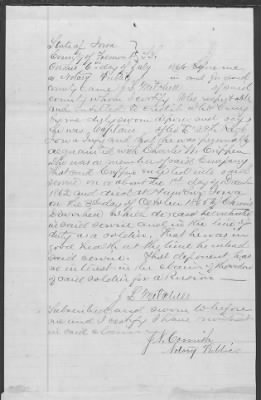 State of Iowa
County of Fremont } SS.
On this 6 day of July before me
a Notary Public in and for said
County came J. L. Mitchell of said
county whom I certify to be respectable
and entitled to credit who being
by me duly sworn deposes and says
he was Captain of Co E 29th Regt
Iowa Inf and that he was personally
acquainted with Charles W.
who was a member of said Company
that said enlisted into said
service on or about the 1st day of
1862 and died at Iowa
on the 3rd day of of
which disease he contracted
in said service and in the line of
duty as a soldier, that he was in
good health at the time he entered
said service. That deponent has
no interest in the claim of
of said soldier for a Pension
J. L. Mitchell
Subscribed and sworn to before
me and I certify I have no interest
in said claim
Notary Public